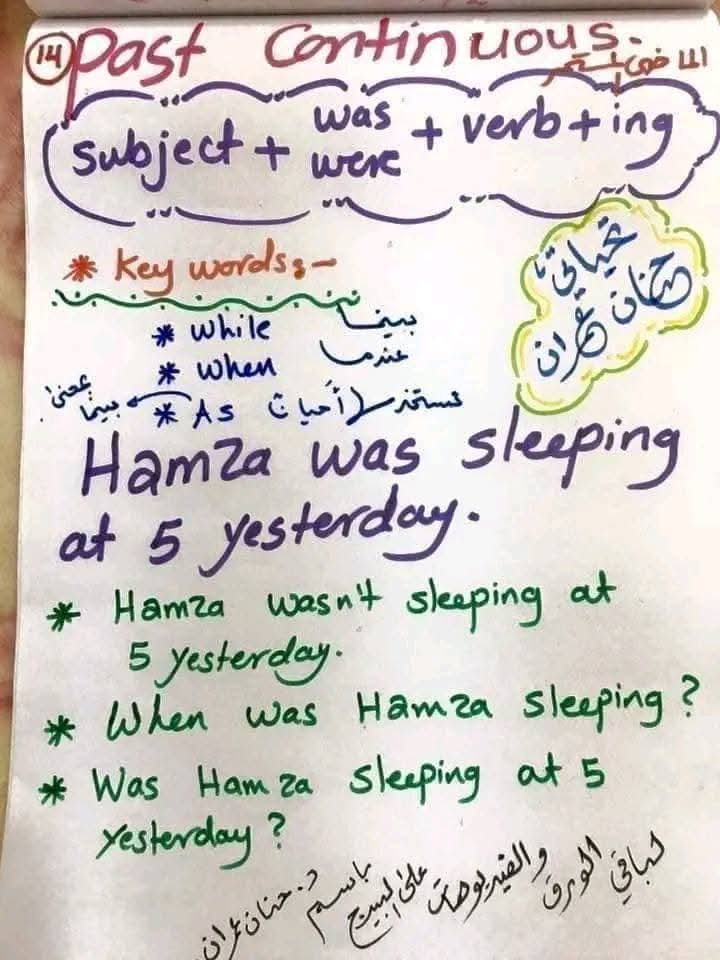 14 Past Continuous.
الماضي المستمر
subject + was were + verb + ing
تحياتي
حنان عمران
* Key words:-
* while بينما
* when عندما
* As تستخدم أحيانا بمعنى بينما
Hamza was sleeping
at 5 yesterday.
* Hamza wasn't sleeping at
5 yesterday.
* When was Hamza sleeping?
* Was Hamza sleeping at 5
yesterday?
لباقي الورق والفيديوهات على البيج باسم د. حنان عمران